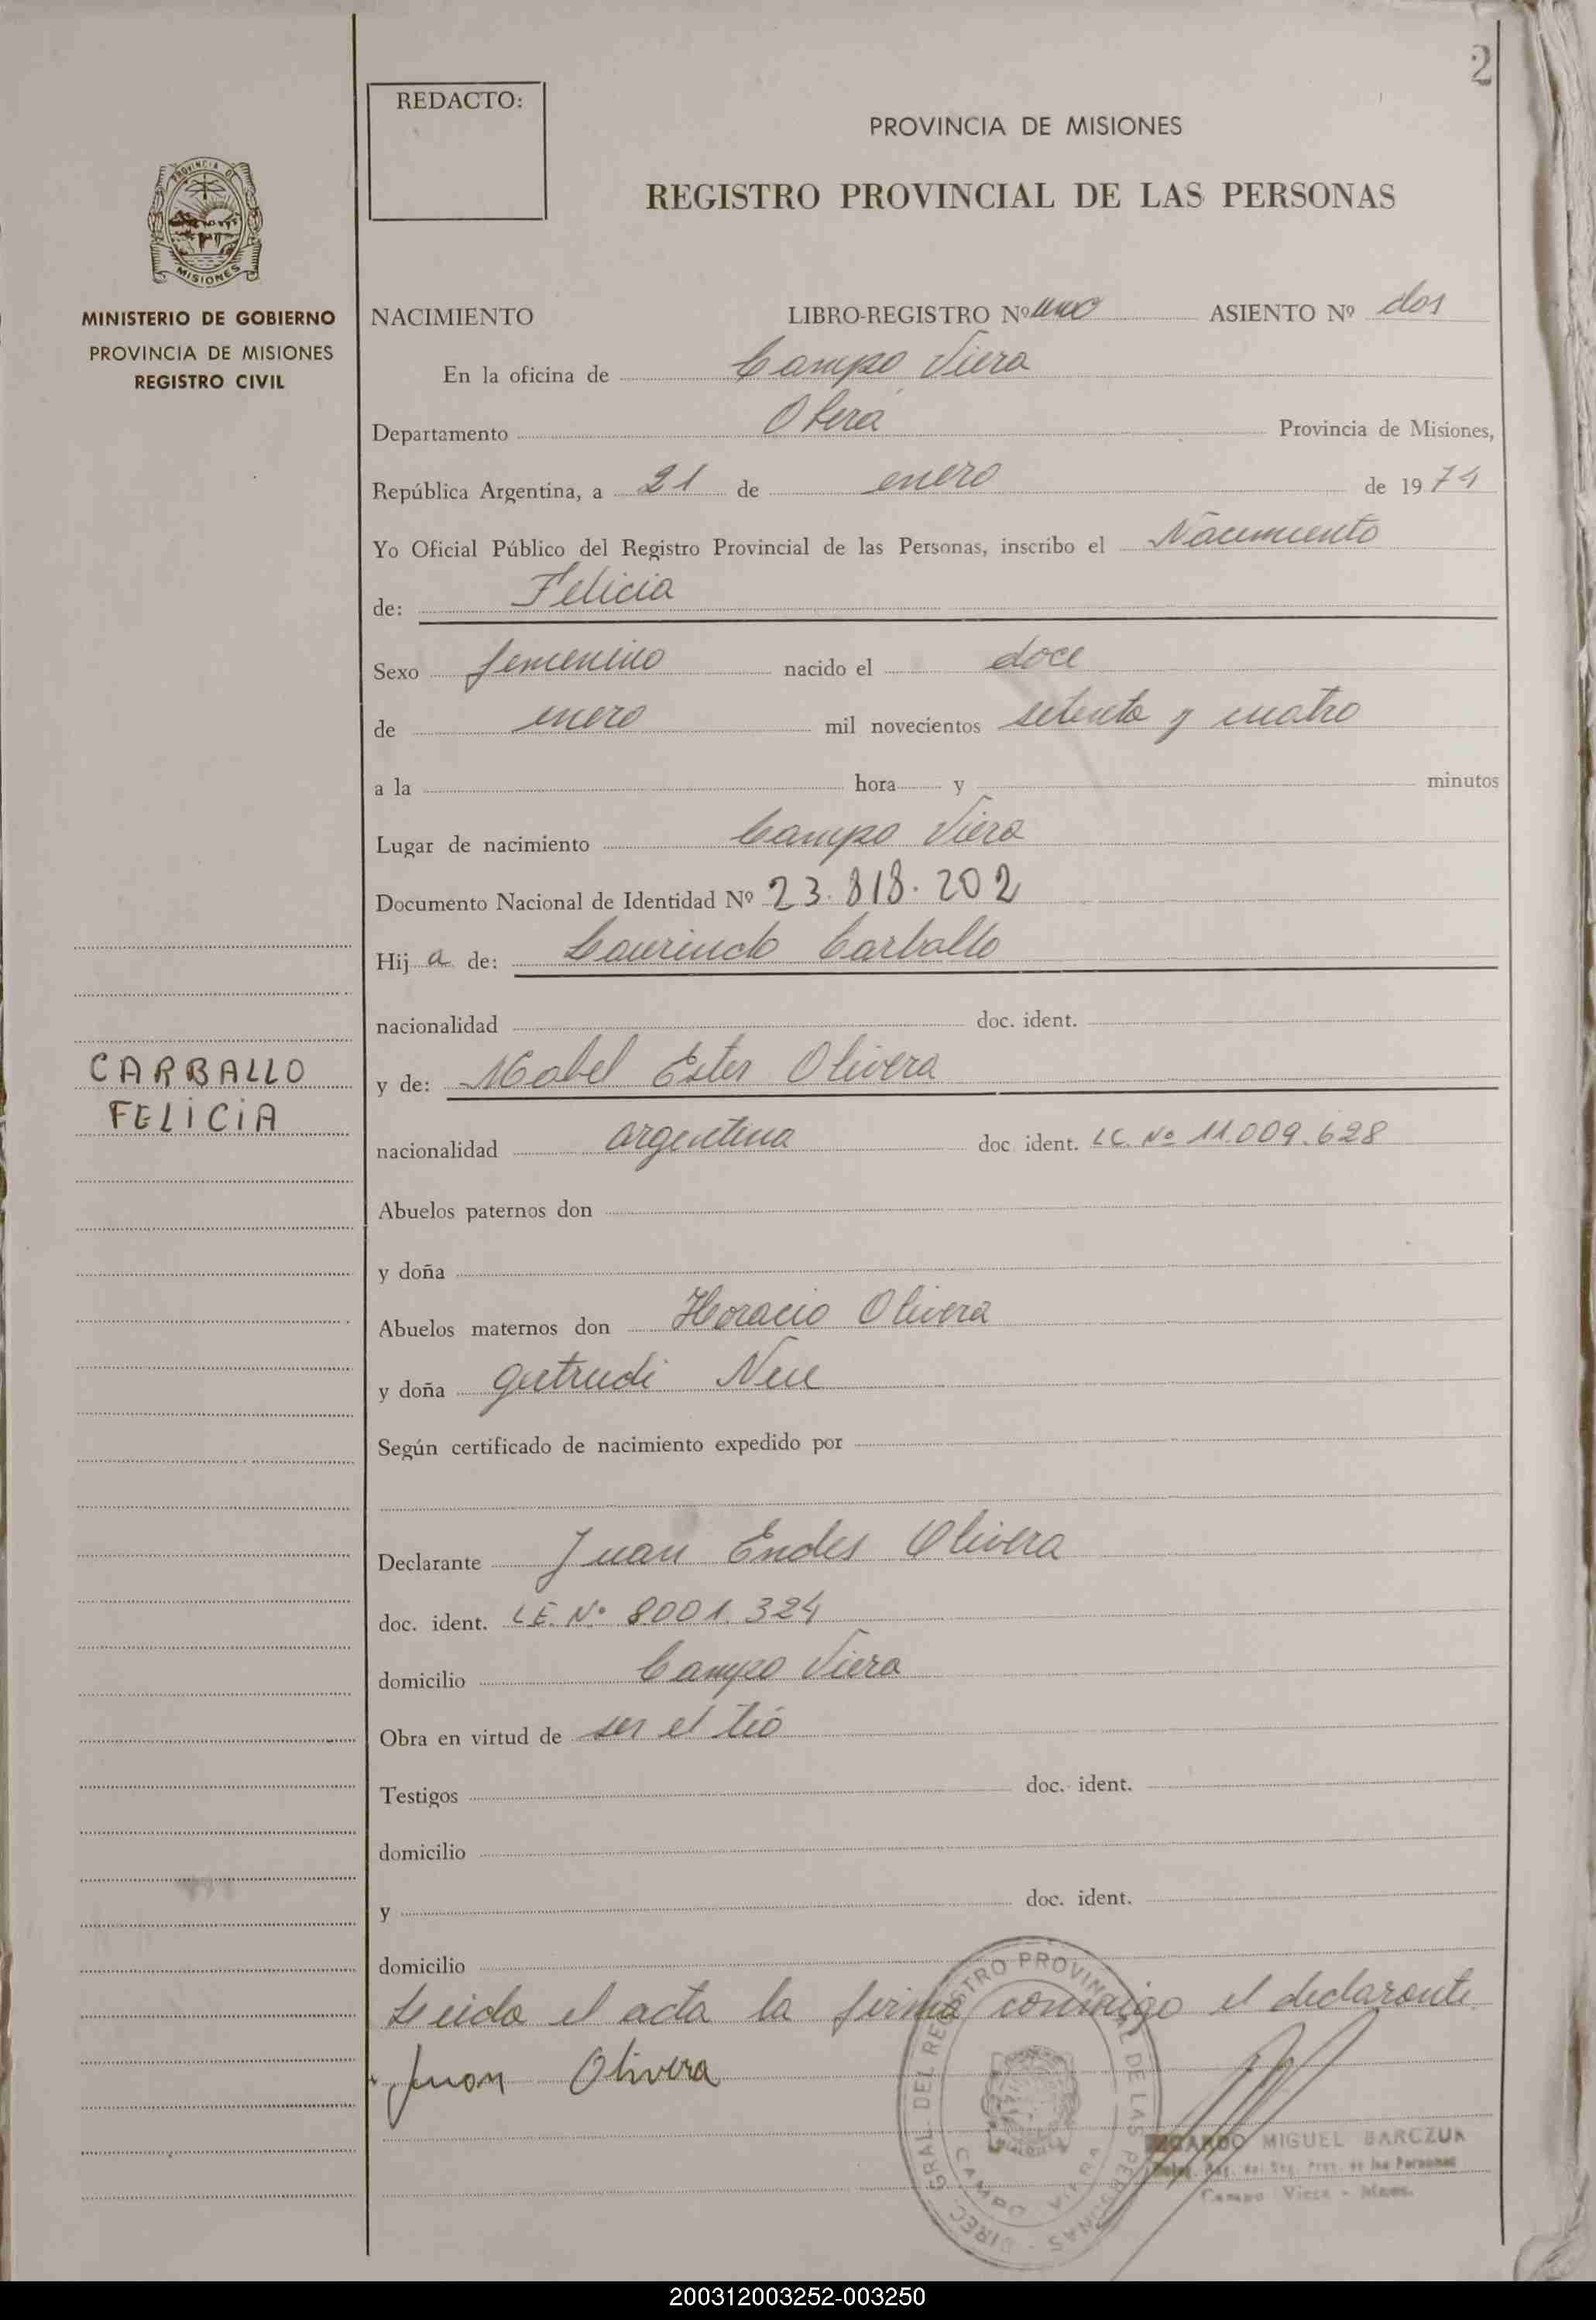 2
REDACTO:
PROVINCIA DE MISIONES
REGISTRO PROVINCIAL DE LAS PERSONAS
PROVINCIA DE
MISIONES
MINISTERIO DE GOBIERNO
PROVINCIA DE MISIONES
REGISTRO CIVIL
NACIMIENTO LIBRO-REGISTRO Nº uno ASIENTO Nº dos
En la oficina de Campo Viera
Departamento Oberá Provincia de Misiones,
República Argentina, a 21 de enero de 1974
Yo Oficial Público del Registro Provincial de las Personas, inscribo el Nacimiento
de: Felicia
Sexo femenino nacido el doce
de enero mil novecientos setenta y cuatro
a la hora y minutos
Lugar de nacimiento Campo Viera
Documento Nacional de Identidad Nº 23.818.202
Hij a de: Laurindo Carballo
nacionalidad doc. ident.
CARBALLO
FELICIA
y de: Mabel Ester Olivera
nacionalidad argentina doc ident. LC. Nº 11.009.628
Abuelos paternos don
y doña
Abuelos maternos don Horacio Olivera
y doña Gertrudi
Según certificado de nacimiento expedido por
Declarante Juan Endes Olivera
doc. ident. L.E. Nº 8001.324
domicilio Campo Viera
Obra en virtud de ser el tió
Testigos doc. ident.
domicilio
y doc. ident.
domicilio
Leida el acta la firma conmigo el declarante
Juan Olivera
DIREC. GRAL. DEL REGISTRO PROVINCIAL DE LAS PERSONAS
CAMPO VIERA
MIGUEL BARCZUK
Prov. de las Personas
Campo Viera - Mnes.
200312003252-003250